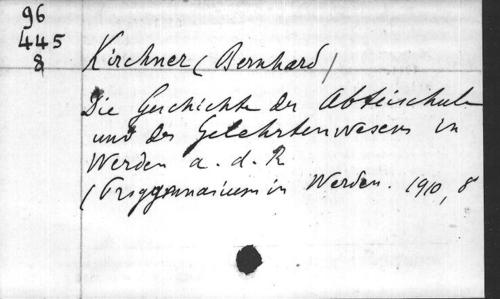 96
445
8
Kirchner (Bernhard)
Die Geschichte der Abteischule
und des Gelehrtenwesens in
Werden a. d. R
(Progymnasium in Werden. 1910, 8°